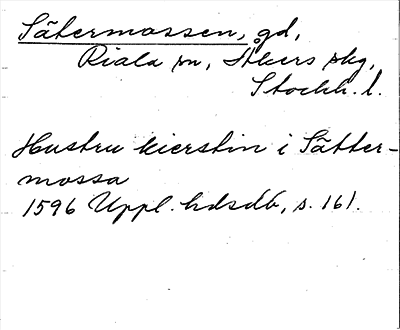 Sätermossen, gd,
Riala sn, Åkers skg,
Stockh. l.
Hustru kierstin i Sätter-
mossa
1596 Uppl. hdsdb, s. 161.